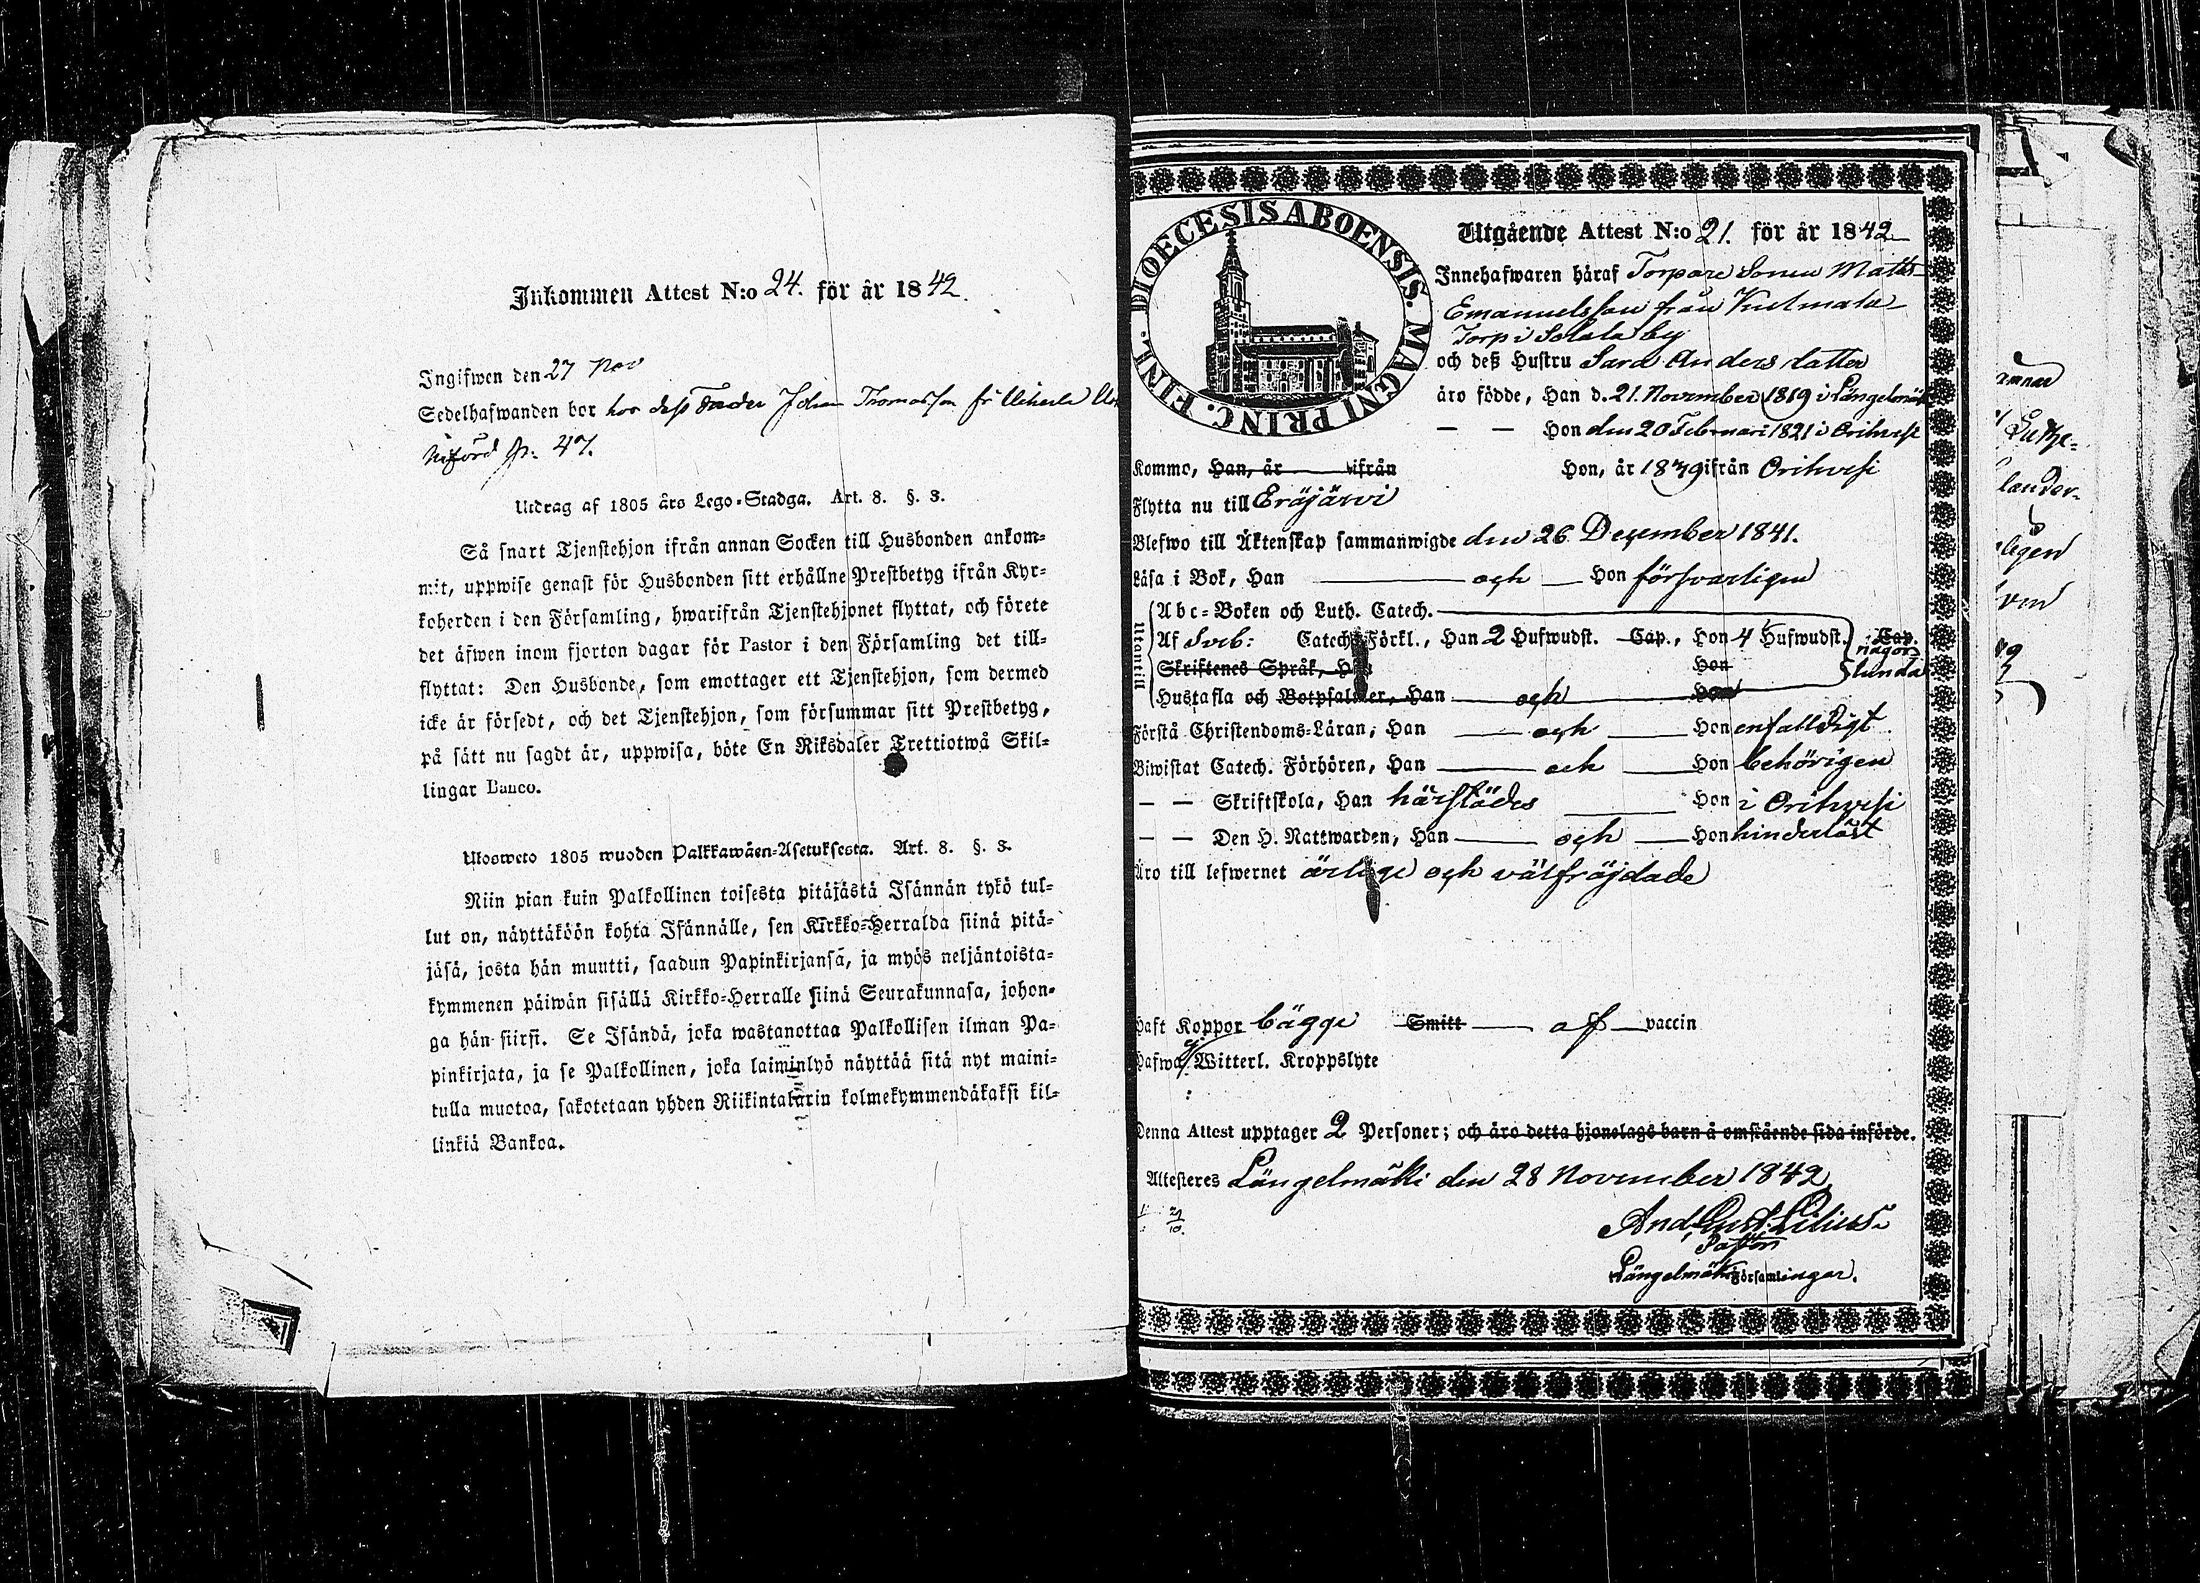 Inkommen Attest N:o 24. för år 1842.
Ingifwen den 27 Nov
Sedelhafwanden bor hos dess Fader Johan Thomasson fr
införd p: 47.
Utdrag af 1805 års Lego-Stadga. Art. 8. §. 3.
Så snart Tjenstehjon ifrån annan Socken till Husbonden ankom-
mit, uppwise genast för Husbonden sitt erhållne Prestbetyg ifrån Kyr-
koherden i den Församling, hwarifrån Tjenstehjonet flyttat, och förete
det äfwen inom fjorton dagar för Pastor i den Församling det till-
flyttat: Den Husbonde, som emottager ett Tjenstehjon, som dermed
icke är försedt, och det Tjenstehjon, som försummar sitt Prestbetyg,
på sätt nu sagdt är, uppwisa, böte En Riksdaler Trettiotwå Skil-
lingar Banco.
Ulosweto 1805 wuoden Palkkawäen-Asetuksesta. Art. 8. §. 3.
Niin pian kuin Palkollinen toisesta pitäjästä Isännän tykö tul-
lut on, näyttäköön kohta Isännälle, sen Kirkko-Herralda siinä pitä-
jäsä, josta hän muutti, saadun Papinkirjansa, ja myös neljäntoista-
kymmenen päiwän sisällä Kirkko-Herralle siinä Seurakunnasa, johon-
ga hän siirsi. Se Isändä, joka wastanottaa Palkollisen ilman Pa-
pinkirjata, ja se Palkollinen, joka laiminlyö näyttää sitä nyt maini-
tulla muotoa, sakotetaan yhden Riikintalarin kolmekymmendäkaksi kil-
linkiä Bankoa.
DIOECESIS ABOENSIS. MAGNI PRINC. FINL.
Utgående Attest N:o 21. för år 1842
Innehafwaren häraf Torpare Sonen Matts
Emanuelsson från Kulmala
Torp i Solala by
och deß Hustru Sara Andersdatter
äro födde, Han d. 21. November 1819 i Längelmäki
— — Hon den 20 Februari 1821 i Orihvesi
Kommo, Han, år ifrån Hon, år 1839 ifrån Orihvesi
Flytta nu till Eräjärvi
Blefwo till Äktenskap sammanwigde den 26 December 1841.
Läsa i Bok, Han och Hon försvarligen
Utantill
Abc-Boken och Luth. Catech.
Af Sveb: Catech. Förkl., Han 2 Hufwudst. Cap., Hon 4 Hufwudst. Cap. någor
Skriftenes Språk, Han Hon lunda
Hustafla och Botpsalmer, Han och Hon
Förstå Christendoms-Läran, Han och Hon enfalldigt
Biwistat Catech. Förhören, Han och Hon behörigen
— — Skriftskola, Han härstädes Hon i Orihvesi
— — Den H. Nattwarden, Han och Hon hinderlöst
Äro till lefwernet ärlige och välfräjdade
Haft Koppor bägge Smitt af vaccin
Hafwa ej Witterl. Kroppslyte
Denna Attest upptager 2 Personer; och äro detta hjonelags barn å omstående sida införde.
Attesteres Längelmäki den 28 November 1842
And. Gust. Lilius
Pastor
Längelmäki Församlingar.